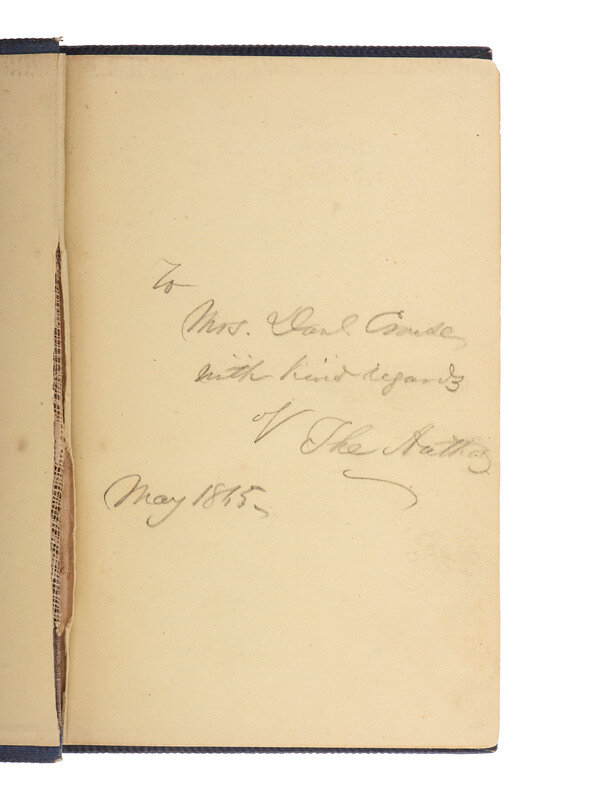 To
Mrs. Danl. Crouse
with kind regards
of The Author
May 1865.